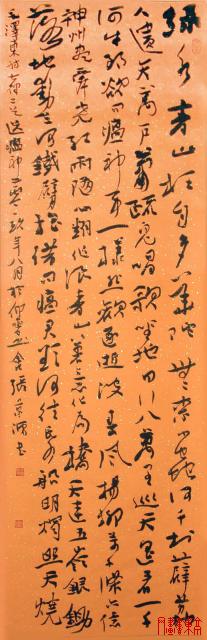 绿水青山枉自多华陀无奈小虫何千村薜荔
人遗矢万户萧疏鬼唱歌坐地日行八万里巡天遥看一千
河牛郎欲问瘟神事一样悲欢逐逝波春风杨柳万千条六億
神州尽舜尧红雨随心翻作浪青山着意化为桥天连五岭银锄
落地动三河铁臂摇借问瘟君欲何往纸船明烛照天烧
毛泽东诗七律二首送瘟神 玖年八月於仰 舍張 书